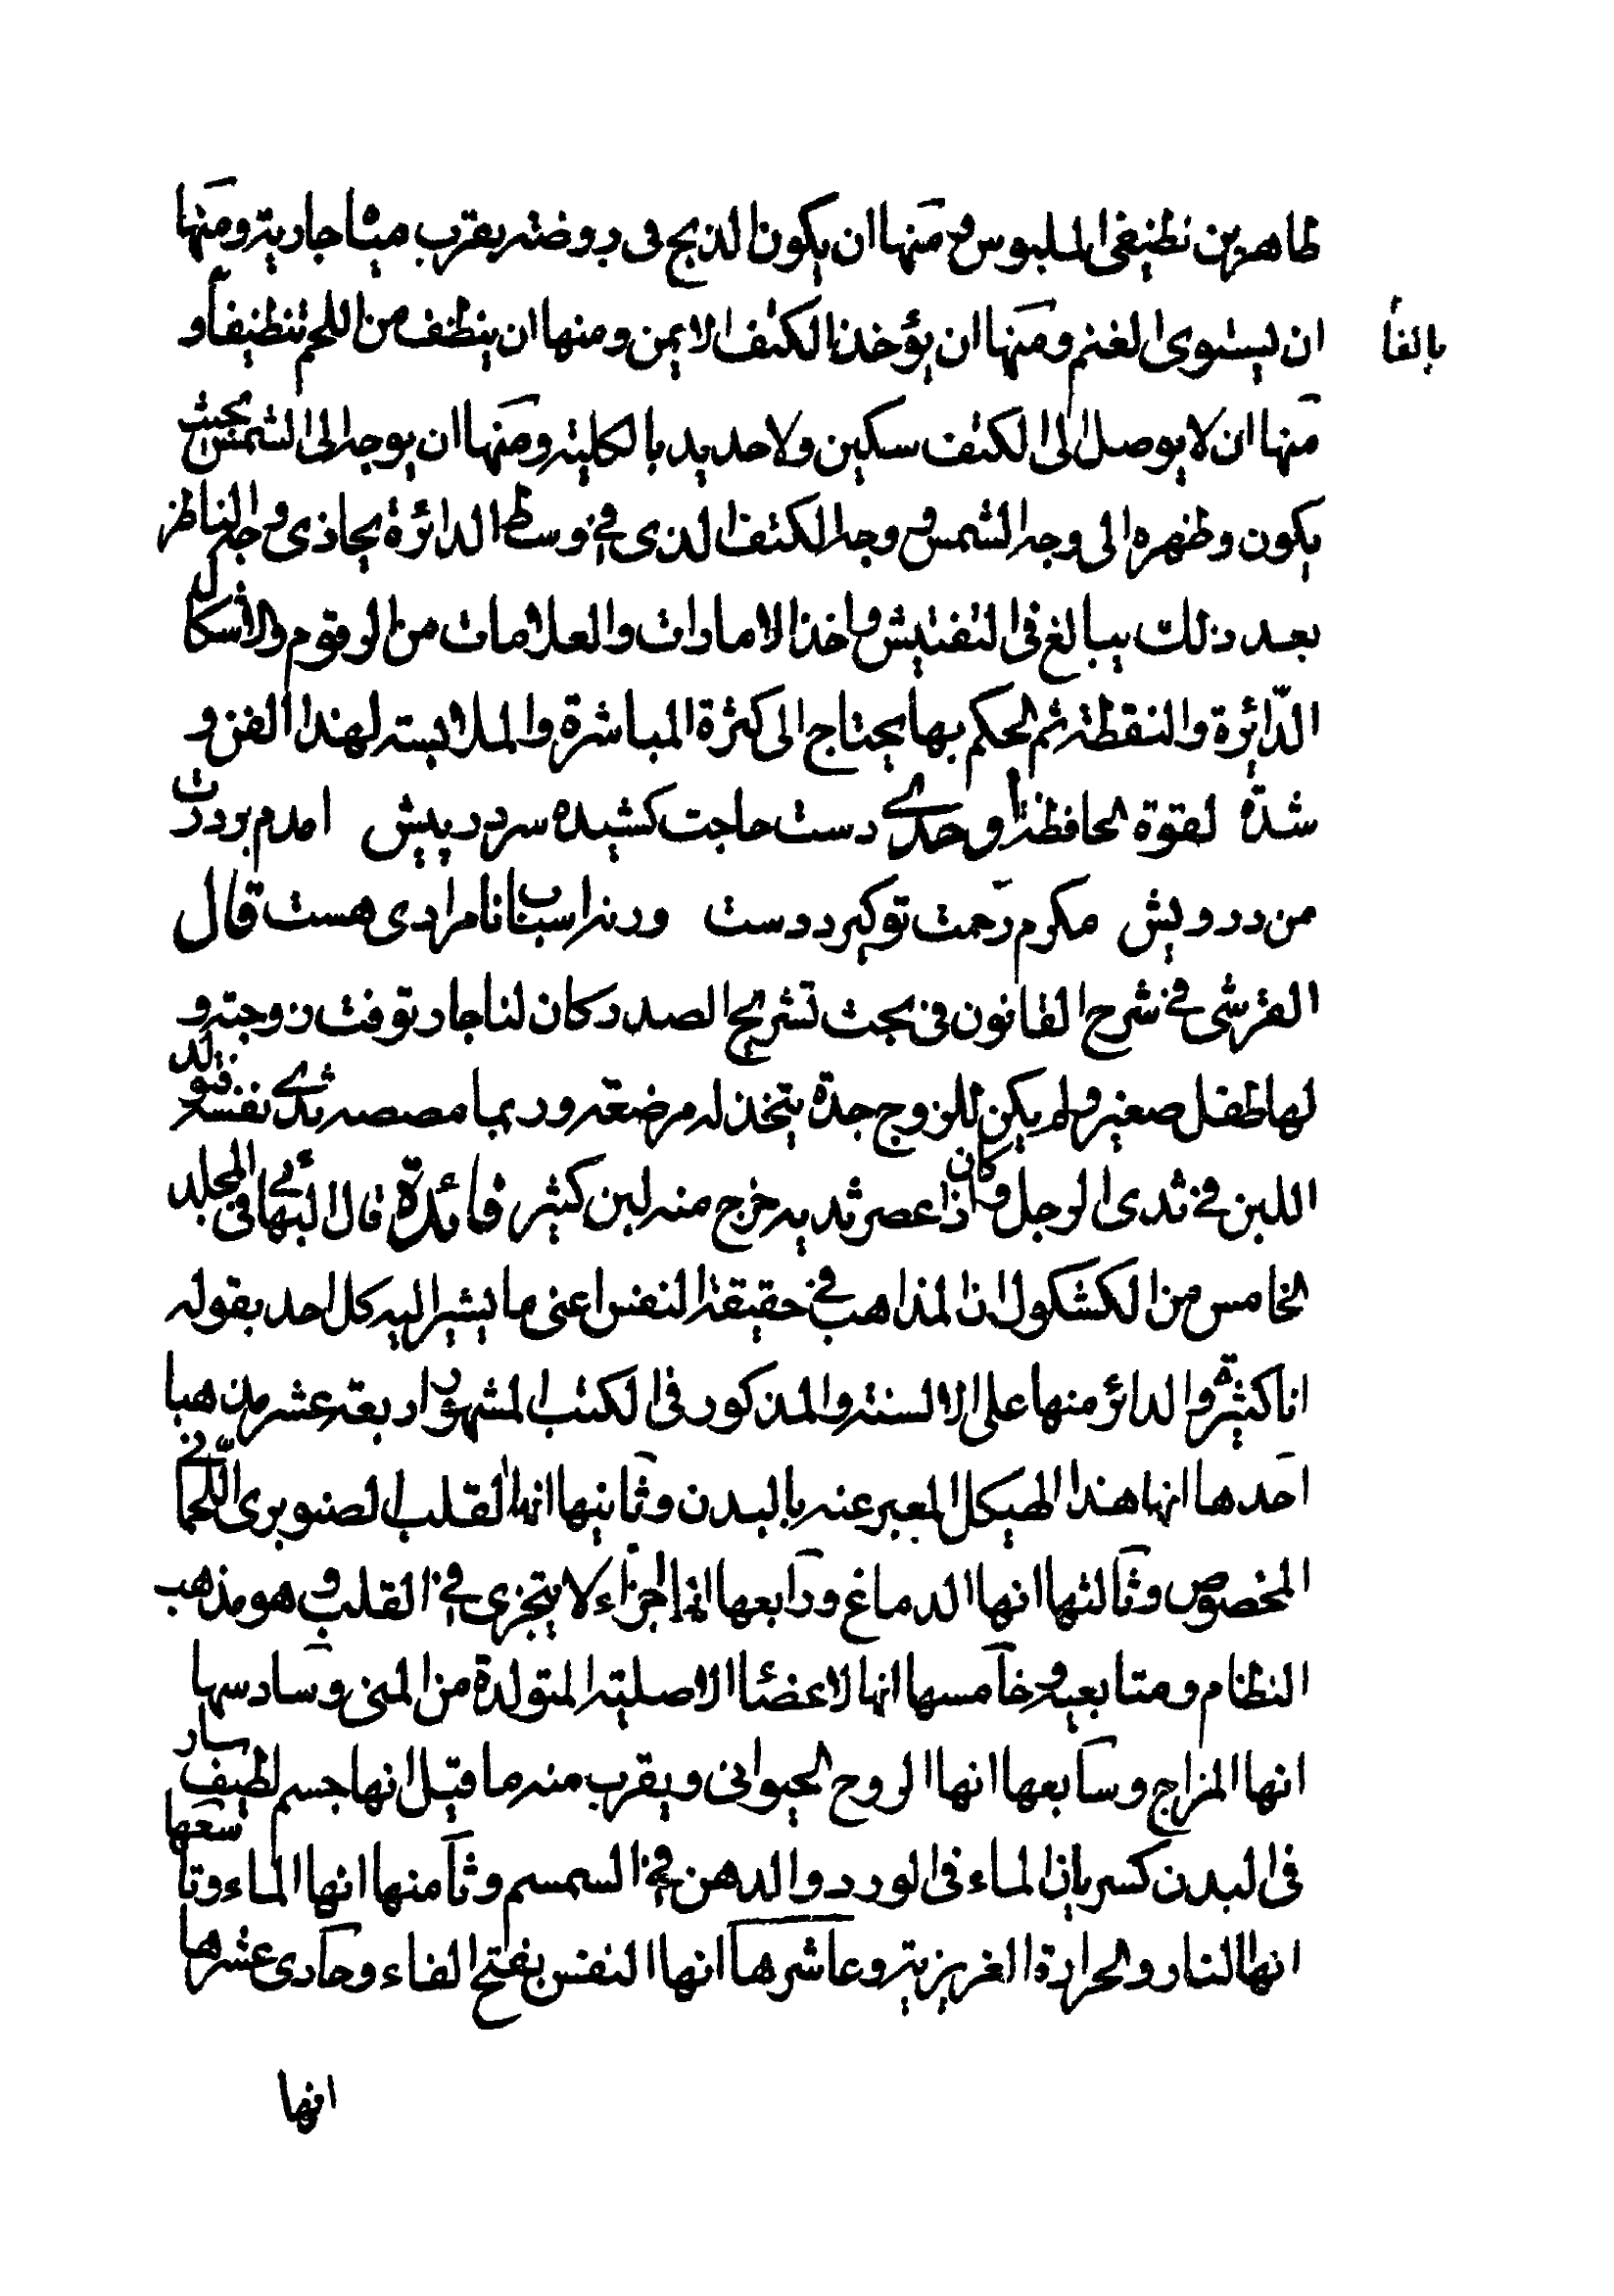 طاهرين نظيفى الملبوس ومنها ان يكون الذبح فى روضه بقرب مياه جارية ومنها
ان يستوى الغنم ومنها ان يؤخذ الكتف الايمن ومنها ان ينظف من اللحم تنظيفا و
بالغا
منها ان لا يوصل الى الكتف سكين ولا حديد بالكلية ومنها ان يوجه الى الشمس بحيث
يكون وظهره الى وجه الشمس ووجه الكتف الذى فى وسط الدائرة يحاذى وجه الناظر
بعد ذلك يبالغ فى التفتيش واخذ الامارات والعلامات من الرقوم والاشكال
الدّائرة والنقطة ثم الحكم بها يحتاج الى كثرة المباشرة والملابسة لهذا الفن و
شدة لقوة الحافظة اوحدى دست حاجت كشيده سر در پيش امدم بر درت
من درويش مكرم رحمت تو گيرد دست ورنه اسباب نامرادى هست قال
القرشى فى شرح القانون فى بحث تشريح الصدر كان لنا جار توفت زوجته و
لها طفل صغير ولم يكن للزوج جدة يتخذ له مرضعة وربما مصصه ثدى نفسه فتولد
اللبن فى ثدى الرجل وكان اذا عصر ثديه خرج منه لبن كثير فائدة قال البهائى فى المجلد
الخامس من الكشكول ان المذاهب فى حقيقة النفس اعنى ما يشير اليه كل احد بقوله
انا كثيرة والدائر منها على الالسنة والمذكور فى الكتب المشهورة اربعة عشر مذهبا
احدها انها هذا الهيكل المعبر عنه بالبدن وثانيها انها القلب الصنوبرى اللّحمانى
المخصوص وثالثها انها الدماغ ورابعها انها اجزاء لا يتجزى فى القلب وهو مذهب
النظام ومتابعيه وخامسها انها الاعضاء الاصلية المتولدة من المنى وسادسها
انها المزاج وسابعها انها الروح الحيوانى ويقرب منه ما قيل انها جسم لطيف سار
فى البدن كسريان الماء فى الورد والدهن فى السمسم وثامنها انها الماء وتاسعها
انها النار والحرارة الغريزية وعاشرها انها النفس بفتح الفاء وحادى عشرها
انها